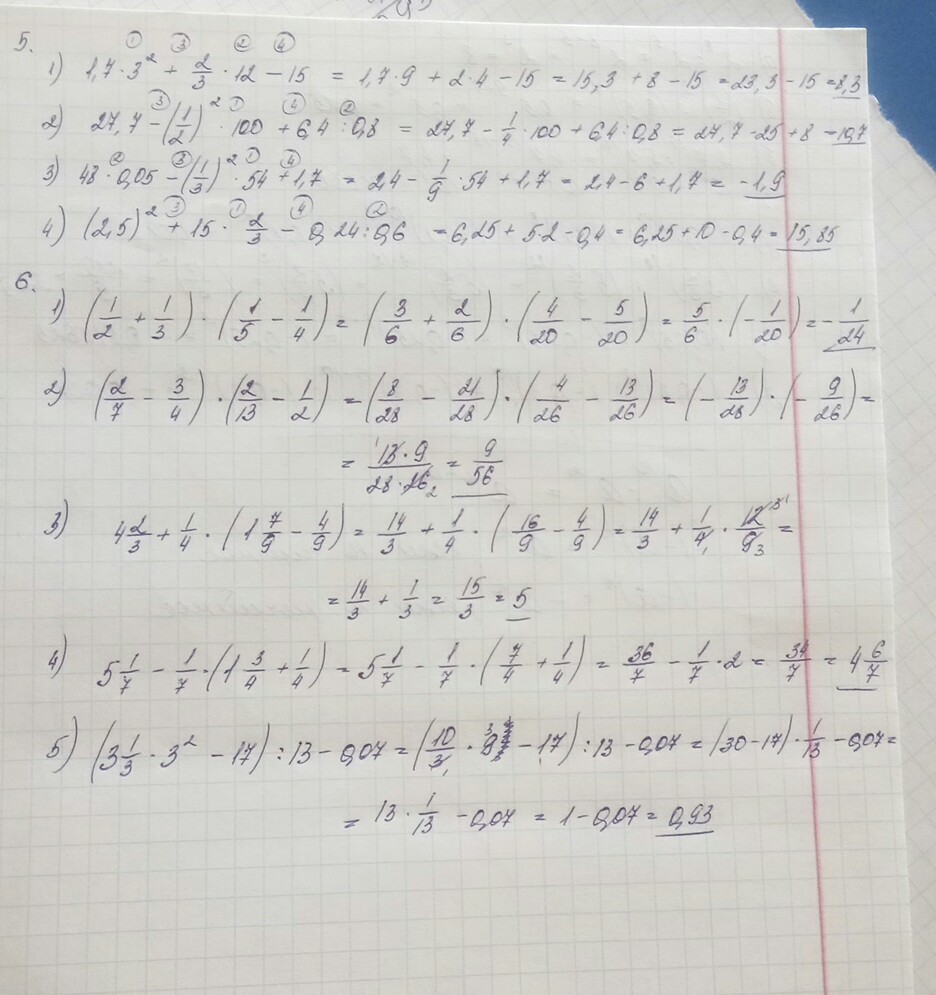 5.
① ③ ② ④
1) 1,7 · 3² + 2/3 · 12 - 15 = 1,7 · 9 + 2 · 4 - 15 = 15,3 + 8 - 15 = 23,3 - 15 = 8,3
③ ① ④ ②
2) 27,7 - (1/2)² · 100 + 6,4 : 0,8 = 27,7 - 1/4 · 100 + 6,4 : 0,8 = 27,7 - 25 + 8 = 10,7
② ③ ① ④
3) 48 · 0,05 - (1/3)² · 54 + 1,7 = 2,4 - 1/9 · 54 + 1,7 = 2,4 - 6 + 1,7 = -1,9
③ ① ④ ②
4) (2,5)² + 15 · 2/3 - 0,24 : 0,6 = 6,25 + 5·2 - 0,4 = 6,25 + 10 - 0,4 = 15,85
6.
1) (1/2 + 1/3) · (1/5 - 1/4) = (3/6 + 2/6) · (4/20 - 5/20) = 5/6 · (-1/20) = -1/24
2) (2/7 - 3/4) · (2/13 - 1/2) = (8/28 - 21/28) · (4/26 - 13/26) = (-13/28) · (-9/26) =
= 13 · 9 / 28 · 26 = 9/56
3) 4 2/3 + 1/4 · (1 7/9 - 4/9) = 14/3 + 1/4 · (16/9 - 4/9) = 14/3 + 1/4 · 12/9 =
= 14/3 + 1/3 = 15/3 = 5
4) 5 1/7 - 1/7 · (1 3/4 + 1/4) = 5 1/7 - 1/7 · (7/4 + 1/4) = 36/7 - 1/7 · 2 = 34/7 = 4 6/7
5) (3 1/3 · 3² - 17) : 13 - 0,07 = (10/3 · 9 - 17) : 13 - 0,07 = (30 - 17) · 1/13 - 0,07 =
= 13 · 1/13 - 0,07 = 1 - 0,07 = 0,93